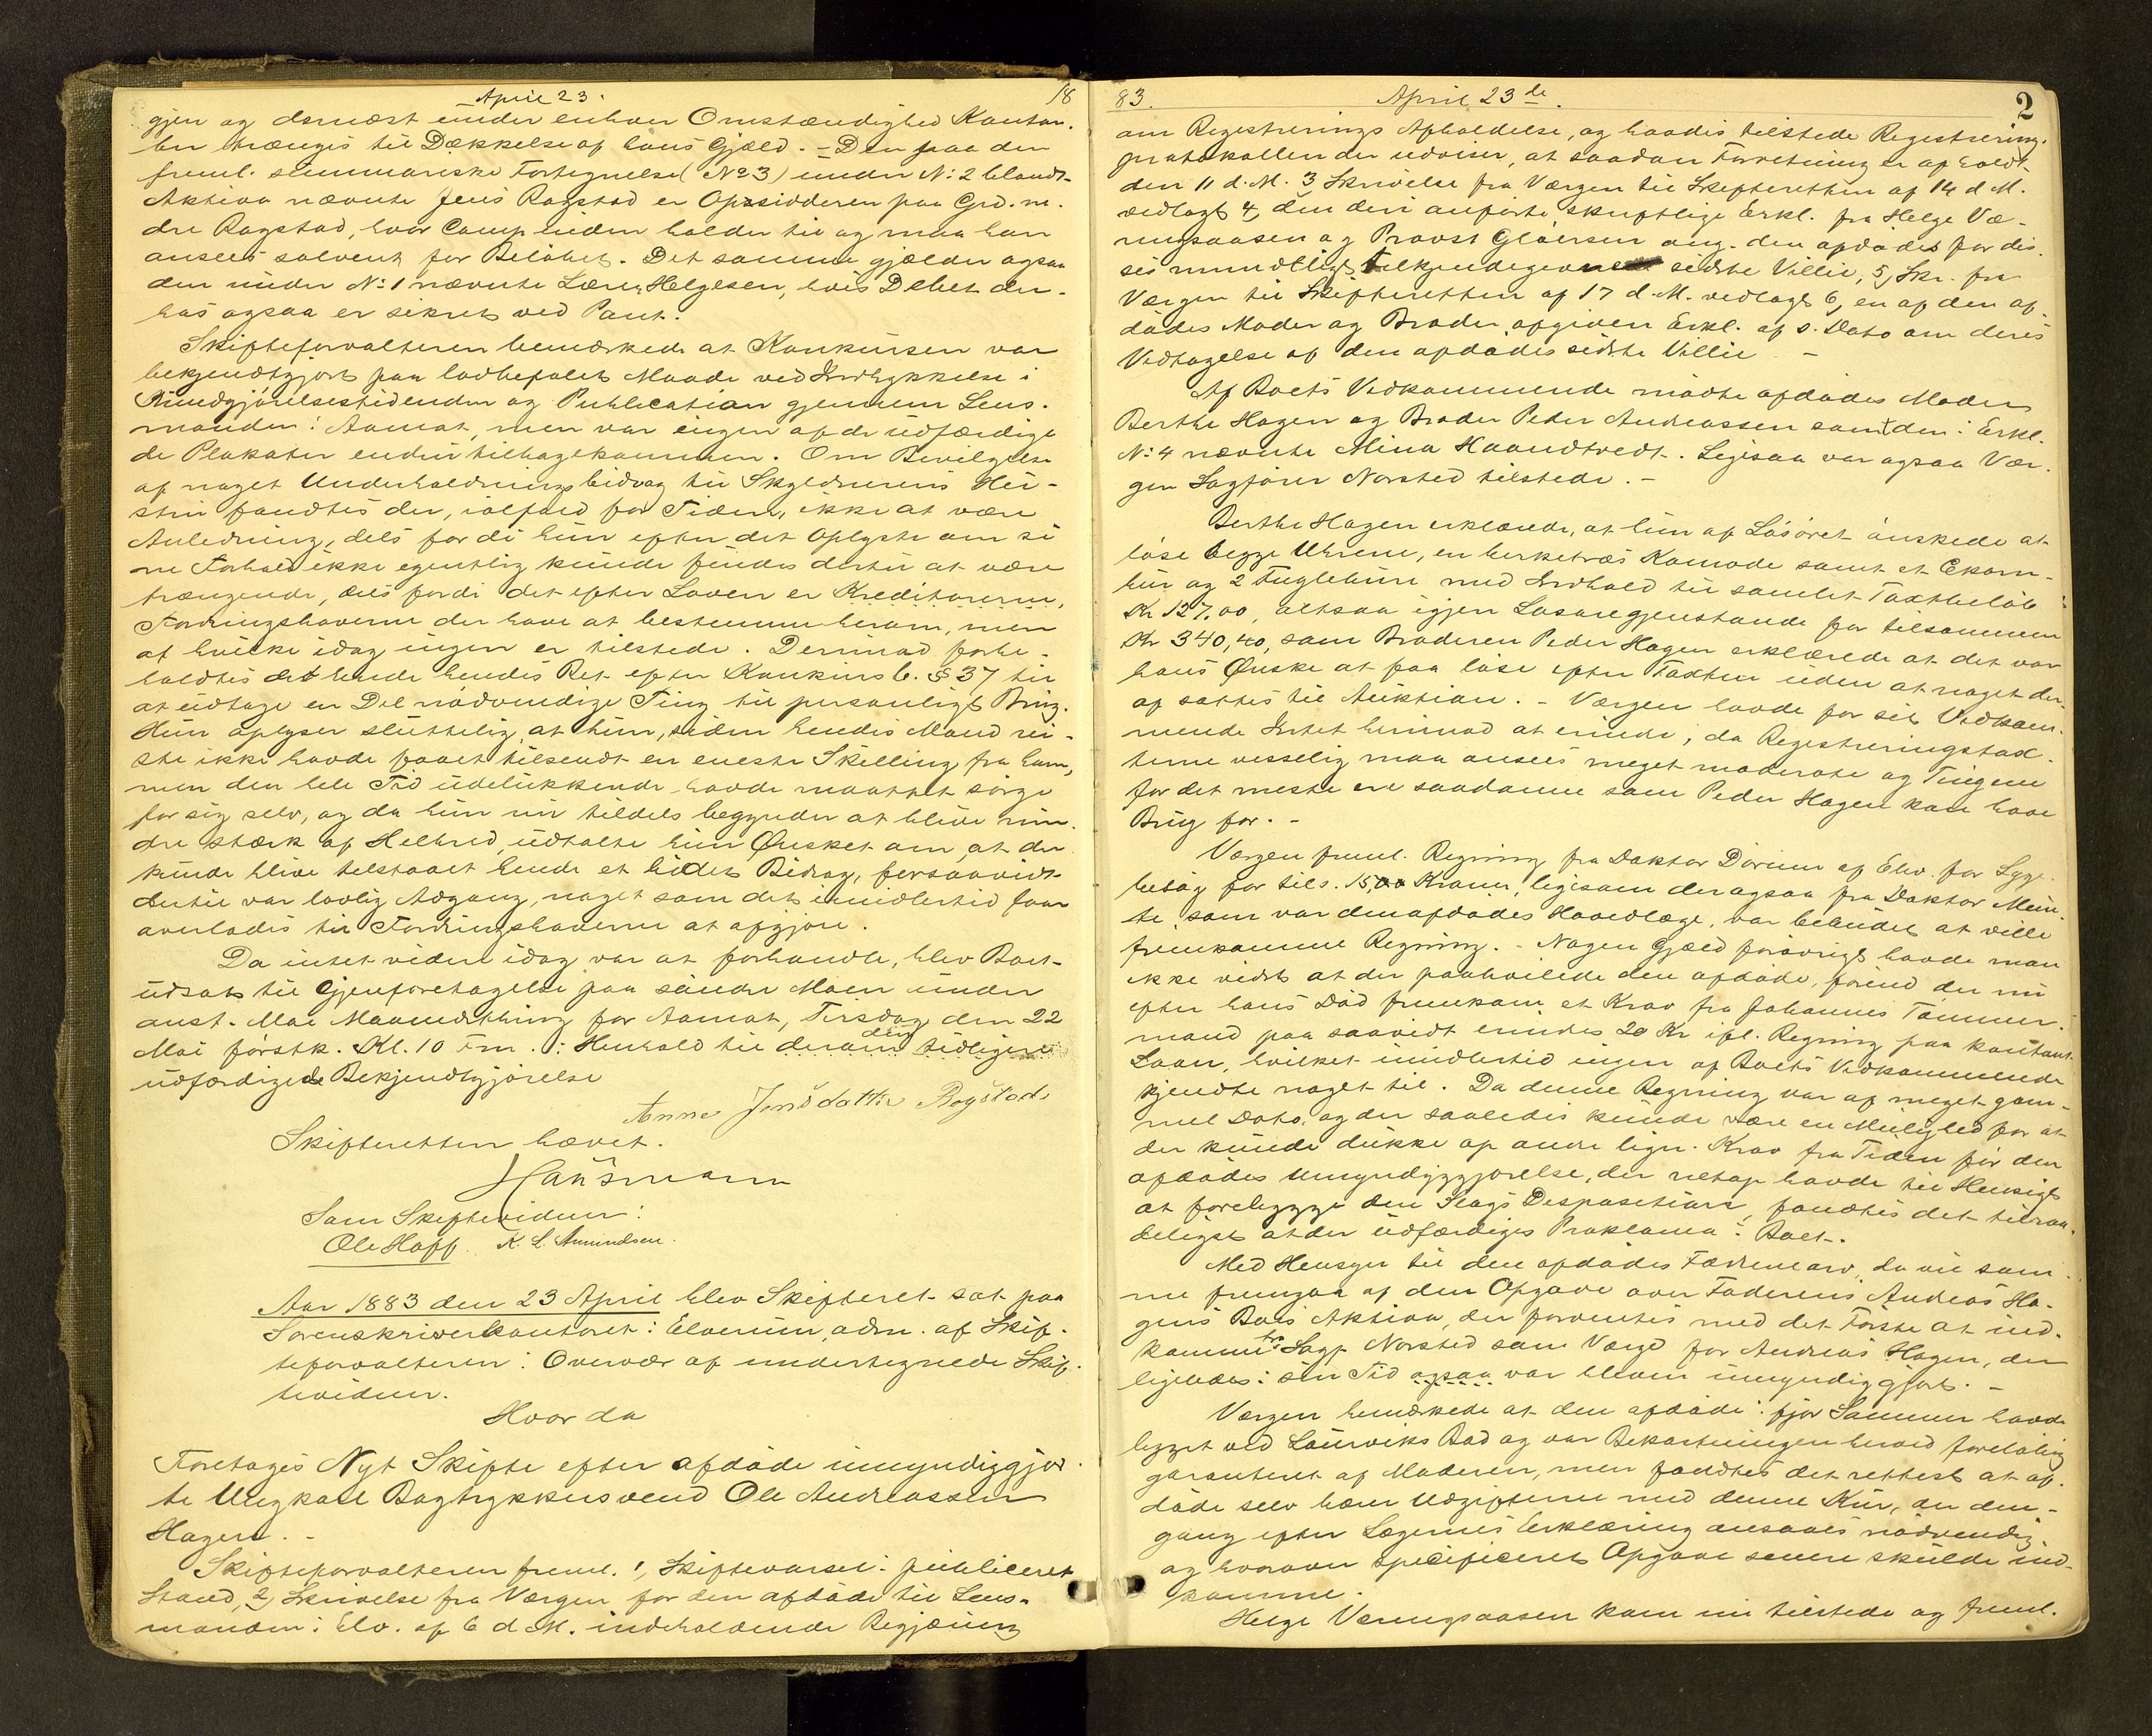 April 23. 18
gjen og dernæst under enhver Omstændighed Kautio-
trænges til Dækkelse af hans Gjæld. - Den paa den
freml. summariske Fortegnelse (No 3) under N: 2 blandt
Aktiva nævnte Jens Rogstad er Opsidderen paa Grd. ne-
dre Rogstad, hvor Comp holder til og maa han
ansees solvent for Beløbet. Det samme gjælder ogsaa
den under N: 1 nævnte Lærer Helgesen, hvis Debet der-
hos ogsaa er sikret ved Pant.
Skifteforvalteren bemærkede at Konkursen var
bekjendtgjort paa lovbefalet Maade ved Indrykkelse i
Kundgjørelsestidenden og Publication gjennem Lens-
manden i Aamot, men var ingen af de udfærdige-
de Plakater endnu tilbagekommen. Om Bevilgelse
af noget Underholdningsbidrag til Skyldnerens Hu-
stru fandtes der, ialfald for Tiden, ikke at være
Anledning, dels fordi hun efter det Oplyste om si-
ne Forhold ikke egentlig kunde siges dertil at være
trængende, dels fordi det efter Loven er Kreditorerne,
Fordringshaverne der have at bestemme herom, men
af hvilke idag ingen er tilstede. Derimod forbe-
holdtes det hende hendes Ret efter Konkursl. § 37 til
at udtage en Del nødvendige Ting til personligt Brug.
Hun oplyser sluttelig, at hun, siden hendes Mand rei-
ste ikke havde faaet tilsendt en eneste Skilling fra ham,
men den hele Tid udelukkende havde maattet sørge
for sig selv, og da hun nu tildels begynder at blive min-
dre stærk af Helbred, udtalte hun Ønsket om, at der
kunde blive tilstaaet hende et lidet Bidrag, forsaavidt
dertil var lovlig Adgang, noget som det imidlertid faar
overlades til Fordringshaverne at afgjøre.
Da intet videre idag var at forhandle, blev Boet
udsat til Gjenforetagelse paa søndre Moen under
anst. Mai Maanedsthing for Aamot, Tirsdag den 22
Mai førstk. Kl. 10 Fm. i Henhold til den derom tidligere
udfærdigede Bekjendtgjørelse
Anne Jensdatter Rogstad
Skifteretten hævet.
Hansmann
Som Skiftevidner:
Ole Hoff. K. L. Amundsen.
Aar 1883 den 23 April blev Skifteret sat paa
Sorenskriverkontoret i Elverum, adm. af Skif-
teforvalteren i Overvær af undertegnede Skif-
tevidner.
Hvor da
Foretages Nyt Skifte efter afdøde umyndiggjor-
te Ungkarl Bogtrykkersvend Ole Andreassen
Hagen. -
Skifteforvalteren freml. 1, Skiftevarsel i publiceret
Stand, 2, Skrivelse fra Værgen for den afdøde til Lens-
manden i Elv. af 6 d. M. indeholdende Begjæring
83. April 23de. 2
om Registrerings Afholdelse, og havdes tilstede Registrerings-
protokollen der udviser, at saadan Forretning er afholdt
den 11 d. M. 3 Skrivelse fra Værgen til Skifteretten af 14 d M.
vedlagt 4, den deri anførte skriftlige Erkl. fra Helge Væ-
ringsaasen og Provst Gløersen ang. den afdødes for dis-
ses mundtligt tilkjendegivne sidste Villie, 5, Skr. fra
Værgen til Skifteretten af 17 d. M. vedlagt 6, en af den af-
dødes Moder og Broder afgiven Erkl. af s. Dato om deres
Vedtagelse af den afdødes sidste Villie -
Af Boets Vedkommende mødte afdødes Moder
Berthe Hagen og Broder Peder Andreassen samt den i Erkl.
N: 4 nævnte Mina Haandtvedt. Ligesaa var ogsaa Vær-
gen Sagfører Norsted tilstede. -
Berthe Hagen erklærede, at hun af Løsøret ønskede at
løse begge Uhrene, en birketræs Komode samt et Ekorn-
bur og 2 Fuglebure med Indhold til samlet Taxtbeløb
Kr 127.00, altsaa igjen Løsøregjenstande for tilsammen
Kr 340,40, som Broderen Peder Hagen erklærede at det var
hans Ønske at faa løse efter Taxten uden at noget der-
af sattes til Auktion. - Værgen havde for sit Vedkom-
mende Intet herimod at erindre, da Registreringstax-
terne visselig maa ansees meget moderate og Tingene
for det meste ere saadanne som Peder Hagen kan have
Brug for. -
Værgen freml. Regning fra Doktor Dørum af Elv. for Syge-
besøg for tils. 15,00 Kroner, ligesom der ogsaa fra Doktor Mein-
te som var den afdødes Hovedlæge, var bebudet at ville
fremkomme Regning. - Nogen Gjæld forøvrigt havde man
ikke vidst at der paahvilede den afdøde, førend der nu
efter hans Død fremkom et Krav fra Johannes Tømmer-
mand paa saavidt erindres 20 Kr ifl. Regning paa kontant
Laan, hvilket imidlertid ingen af Boets Vedkommende
kjendte noget til. Da denne Regning var af meget gam-
mel Dato, og der saaledes kunde være en Mulighed for at
der kunde dukke op andre lign. Krav fra Tiden før den
afdødes Umyndiggjørelse, der netop havde til Hensigt
at forebygge den Slags Dispositioner, fandtes det tilraa-
deligst at der udfærdiges Proklama i Boet.
Med Hensyn til den afdødes Fædrenearv, da vil sam-
me fremgaa af den Opgave over Faderens Andreas Ha-
gens Bos Aktiva, der forventes med det Første at ind-
komme fra Sagf. Norsted som Værge for Andreas Hagen, der
ligeledes i sin Tid ogsaa var bleven umyndiggjort. -
Værgen bemærkede at den afdøde i fjor Sommer havde
ligget ved Laurviks Bad og var Bekostningen herved foreløbig
garanteret af Moderen, men fandtes det rettest at af-
døde selv bærer Udgifterne med denne Kur, der den-
gang efter Lægernes Erklæring ansaaes nødvendig
og hvorover specificeret Opgave senere skulde ind-
komme.
Helge Væringsaasen kom nu tilstede og freml.